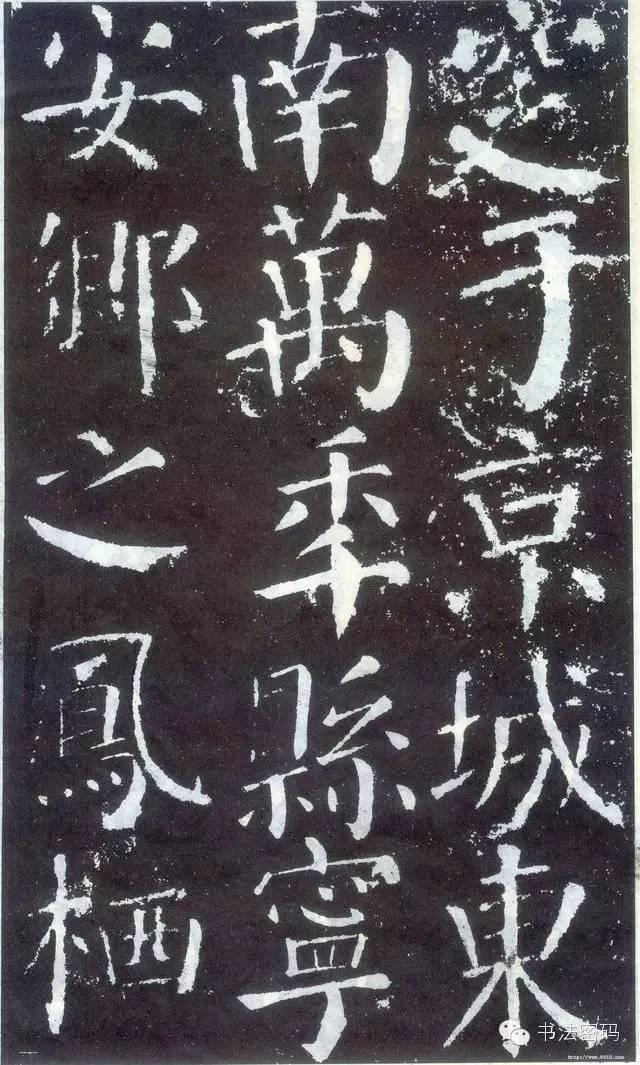 窆于京城東
南萬秊縣寧
安鄉之鳳栖
书法密码
http://www.9610.com